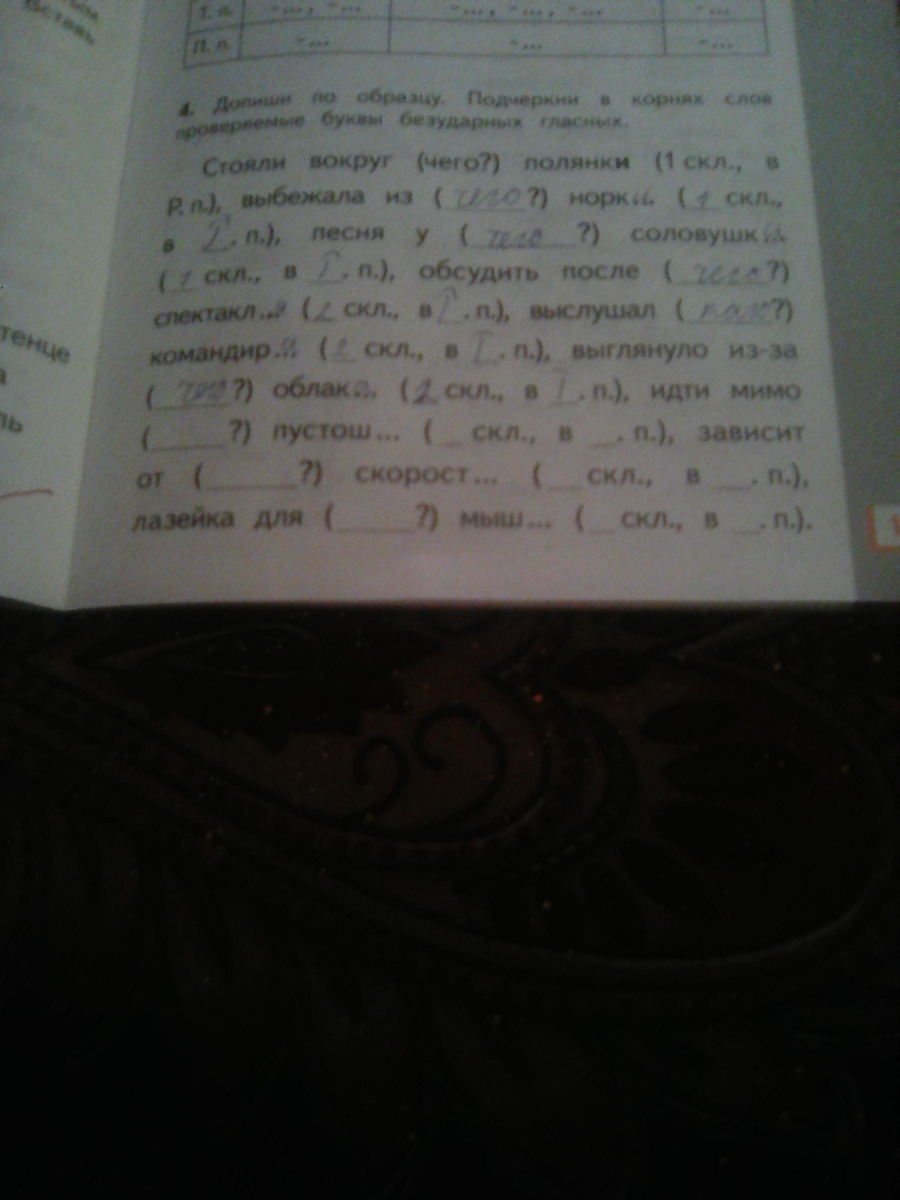 Вставь
Т. п. -..., -... -..., -..., -... -...
П. п. -... -... -...
4. Допиши по образцу. Подчеркни в корнях слов
проверяемые буквы безударных гласных.
Стояли вокруг (чего?) полянки (1 скл., в
Р. п.), выбежала из (чего?) норки (1 скл.,
в . п.), песня у (чего?) соловушк
(1 скл., в . п.), обсудить после (чего?)
спектакл... (2 скл., в . п.), выслушал (кого?)
командир (2 скл., в . п.), выглянуло из-за
(чего?) облак (2 скл., в . п.), идти мимо
(_____?) пустош... (_ скл., в _. п.), зависит
от (_____?) скорост... (_ скл., в _. п.),
лазейка для (_____?) мыш... (_ скл., в _. п.).
тенце
а
ль
1